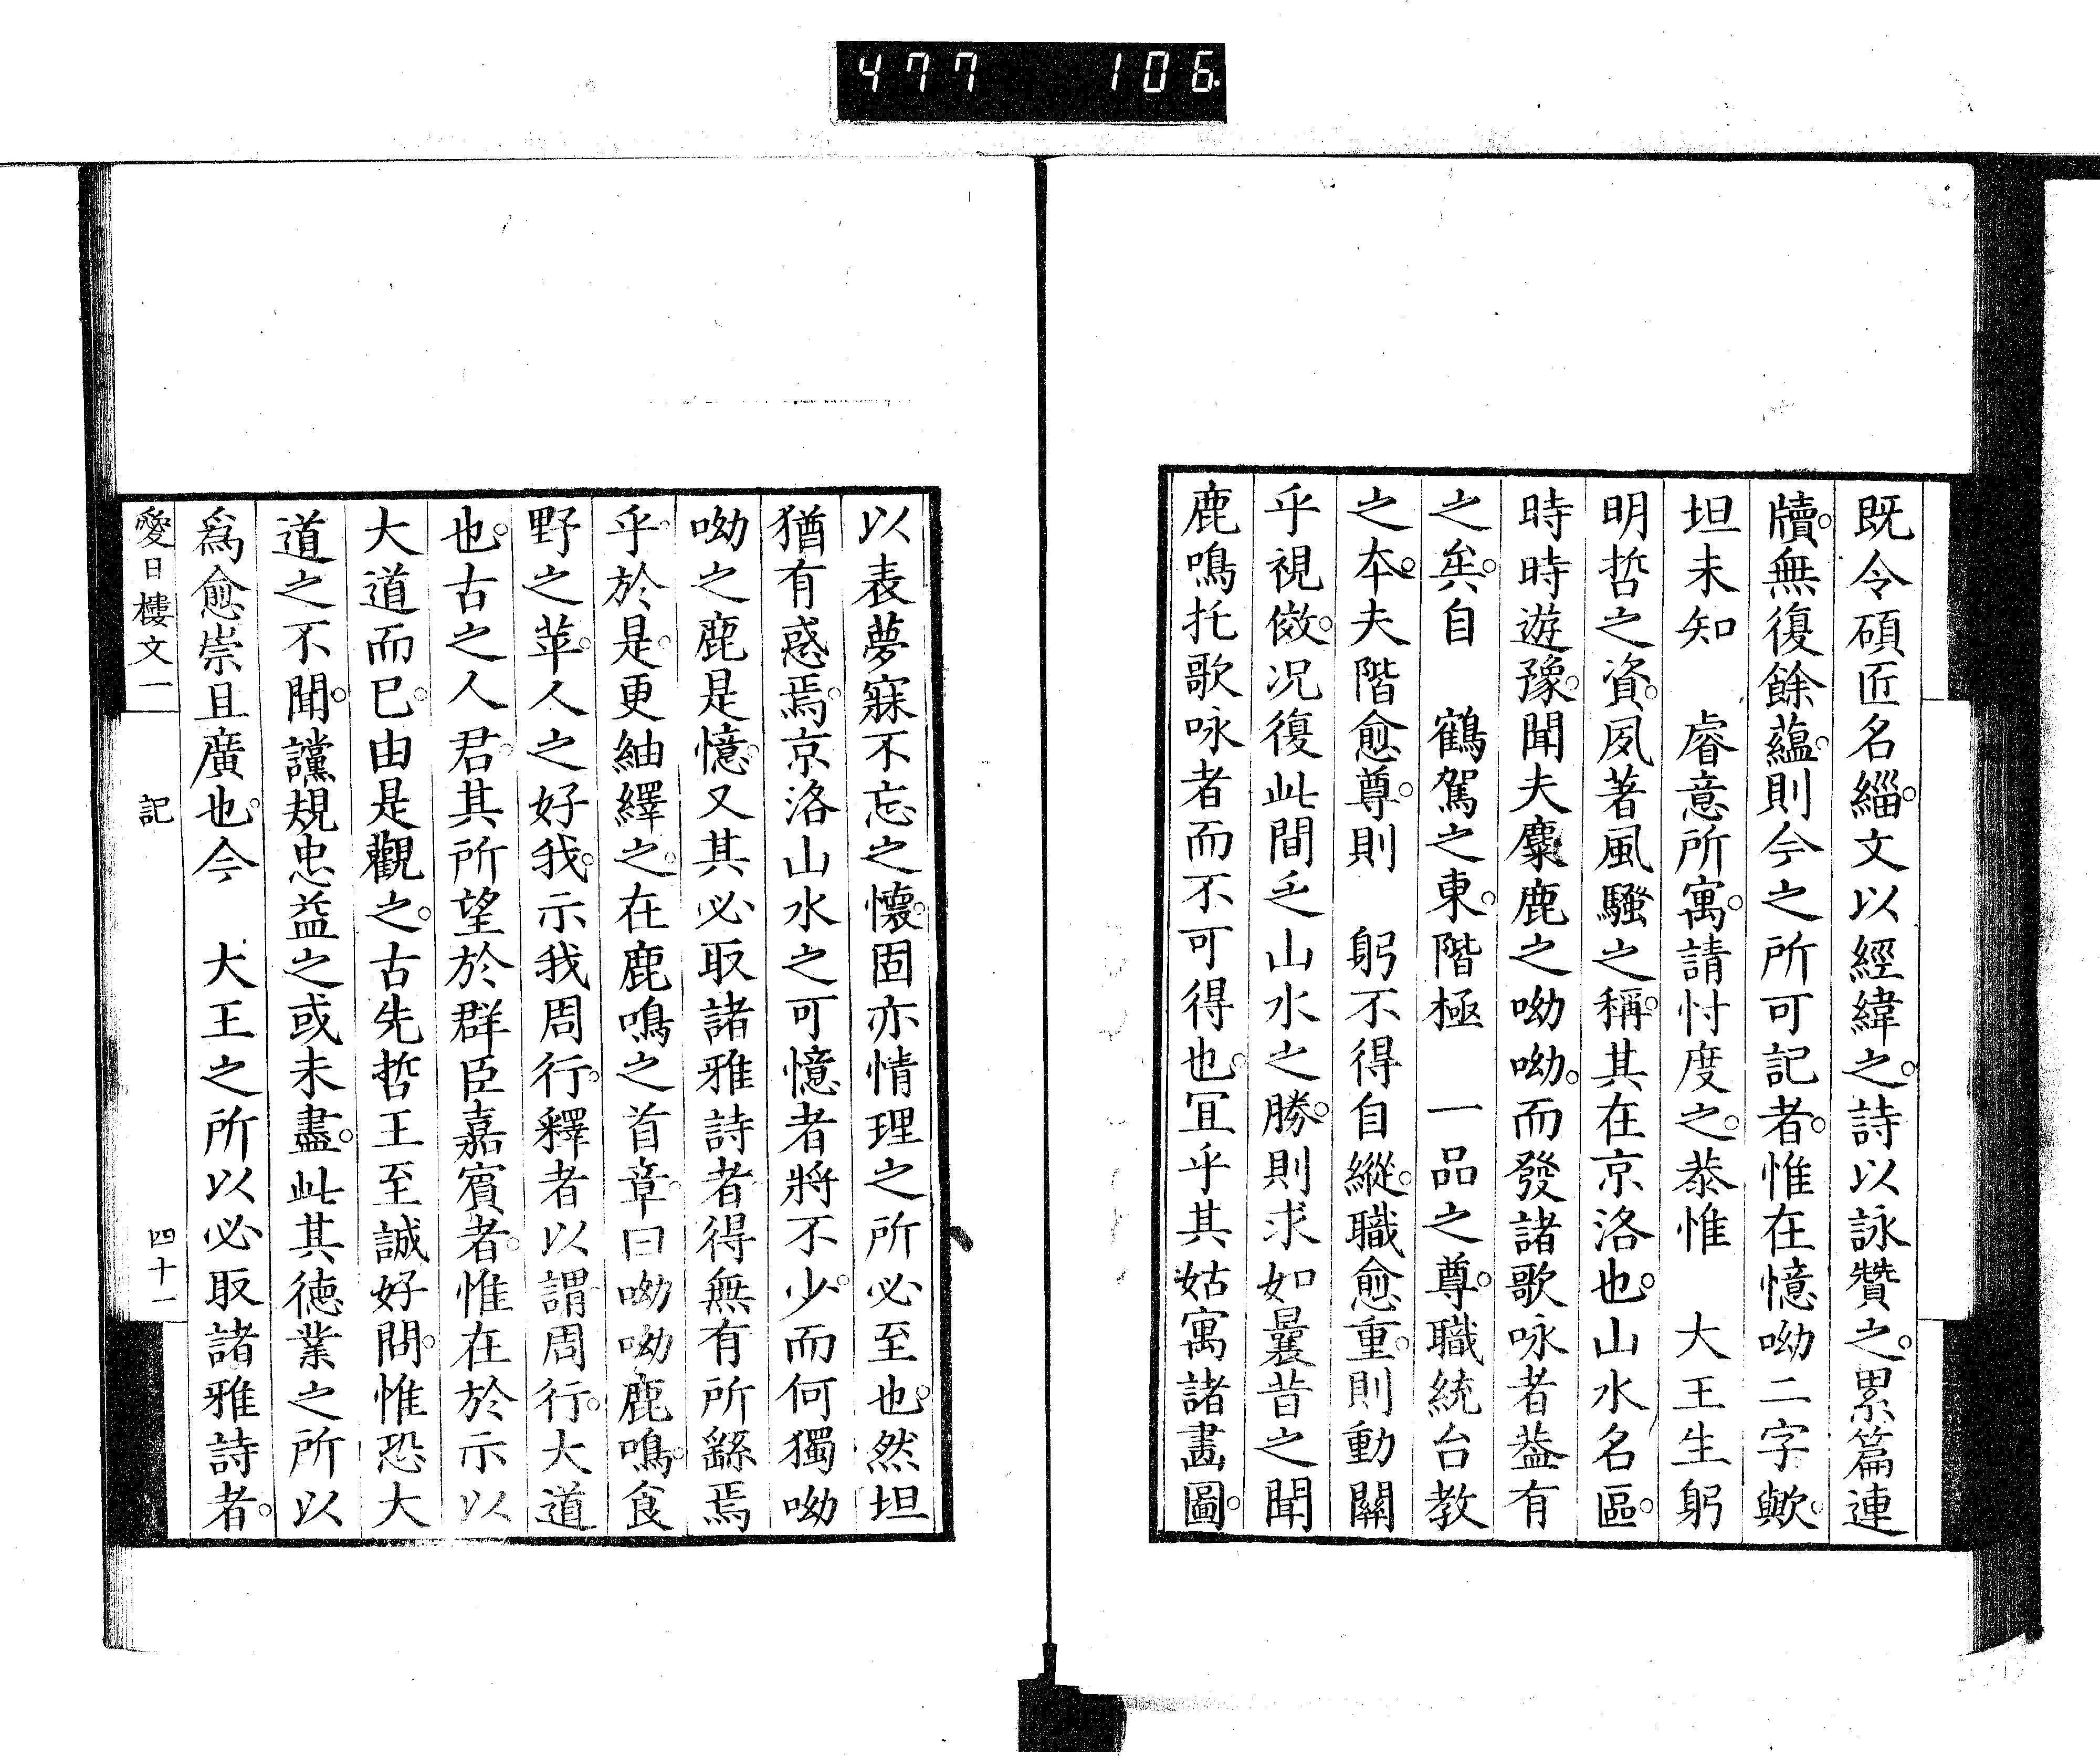 477 106
既令碩匠名緇。文以經緯之。詩以詠贊之。累篇連
牘。無復餘蘊。則今之所可記者。惟在憶呦二字歟。
坦未知　睿意所寓。請忖度之。恭惟　大王生躬
明哲之資。夙著風騷之稱。其在京洛也。山水名區。
時時遊豫。聞夫麋鹿之呦呦。而發諸歌咏者葢有
之矣。自　鶴駕之東。階極　一品之尊。職統台教
之本。夫階愈尊。則　躬不得自縱。職愈重。則動關
乎視傚。況復此間乏山水之勝。則求如曩昔之聞
鹿鳴托歌咏者而不可得也。宜乎其姑寓諸畫圖。
以表夢寐不忘之懷。固亦情理之所必至也。然坦
猶有惑焉。京洛山水之可憶者將不少。而何獨呦
呦之鹿是憶。又其必取諸雅詩者得無有所繇焉
乎。於是。更紬繹之。在鹿鳴之首章。曰呦呦鹿鳴。食
野之苹。人之好我。示我周行。釋者以謂。周行。大道
也。古之人君。其所望於群臣嘉賓者。惟在於示以
大道而已。由是觀之。古先哲王至誠好問。惟恐大
道之不聞。讜規忠益之或未盡。此其徳業之所以
爲愈崇且廣也。今　大王之所以必取諸雅詩者。
愛日樓文一　記　四十一